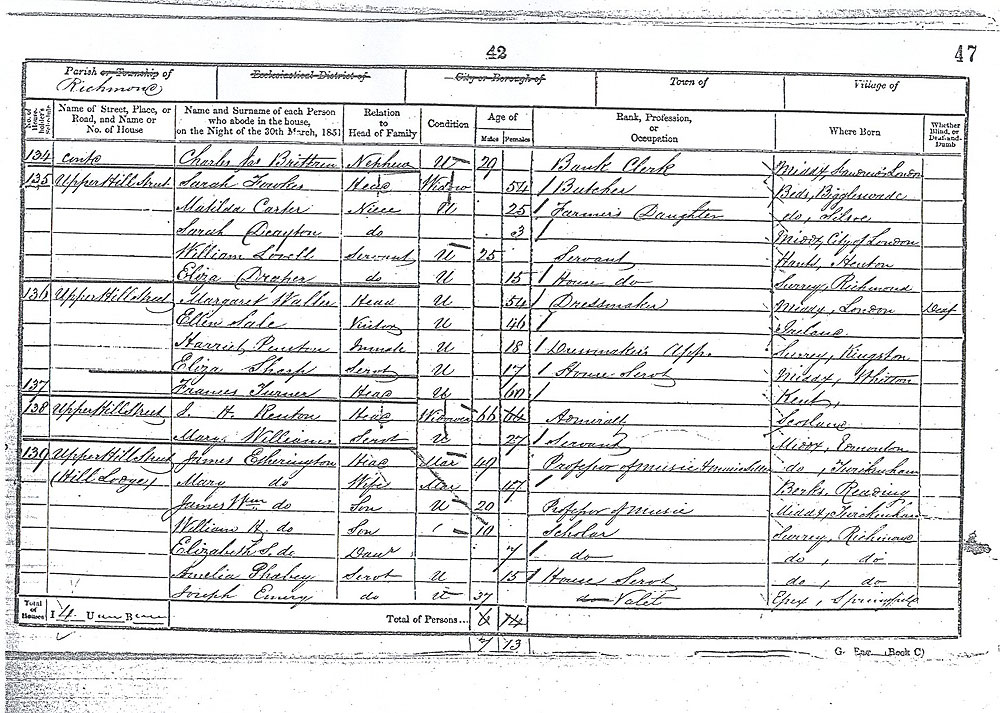 42
47
Parish or Township of
Richmond
Ecclesiastical District of
City or Borough of
Town of
Village of
No. of House-holder's Schedule
Name of Street, Place, or Road, and Name or No. of House
Name and Surname of each Person who abode in the house, on the Night of the 30th March, 1851
Relation to Head of Family
Condition
Age of
Males Females
Rank, Profession, or Occupation
Where Born
Whether Blind, or Deaf-and-Dumb
134 Contd Charles Jas Brittren Nephew U 29 Bank Clerk Middx London
135 Upper Hill Street Sarah Fowkes Head Widow 54 Butcher Beds, Bigglewade
Matilda Carter Niece U 25 Farmer's Daughter do, Silsoe
Sarah Deayton do 3 Middx City of London
William Lovell Servant U 25 Servant Hants, Henton
Eliza Draper do U 15 House do Surrey, Richmond
136 Upper Hill Street Margaret Waller Head U 54 Dressmaker Middx, London Deaf
Ellen Sale Visitor U 46 Ireland
Harriet Penston Inmate U 18 Dressmaker's App. Surrey, Kingston
Eliza Sharp Servt U 17 House Servt Middx, Whitton
137 Frances Turner Head U 60 Kent,
138 Upper Hill Street J. H. Renton Head Widower 66 64 Admiralty Scotland
Mary Williams Servt U 27 Servant Middx, Edmonton
139 Upper Hill Street James Etherington Head Mar 49 Professor of music & music seller do, Twickenham
(Hill Lodge) Mary do Wife Mar 47 Berks, Reading
James Wm do Son U 20 Professor of music Middx, Twickenham
William H. do Son 10 Scholar Surrey, Richmond
Elizabeth S. do Daur 7 do do, do
Amelia Phabey Servt U 15 House Servt do, do
Joseph Emery do U 37 do Valet Essex, Springfield
Total of Houses I 4 U B
Total of Persons... 6 14
7 13
(Book C)